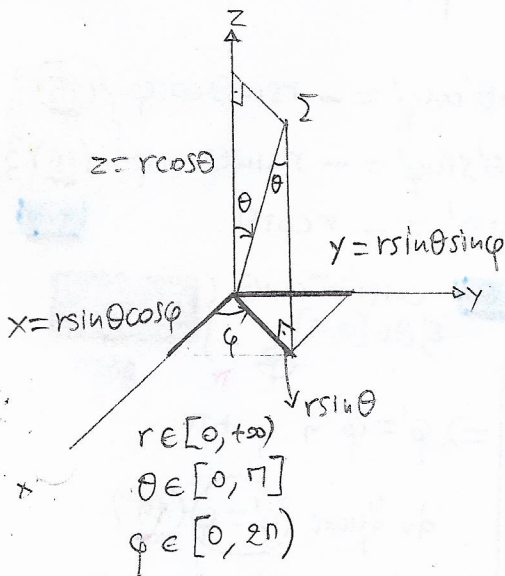 z
Σ
z = rcosθ
θ
θ
y = rsinθsinφ
y
x = rsinθcosφ
φ
rsinθ
r ∈ [0, +∞)
x
θ ∈ [0, π]
φ ∈ [0, 2π)